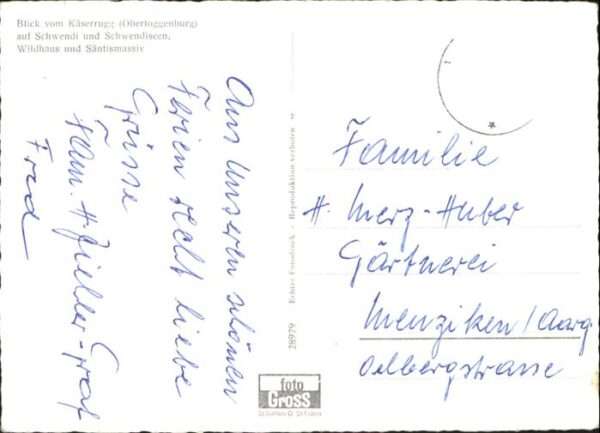 Blick vom Käserrugg (Obertoggenburg)
auf Schwendi und Schwendiseen,
Wildhaus und Säntismassiv
Aus unseren schönen
Ferien recht liebe
Grüsse
Fam. H. Zieller-Graf
Fred
28979
Echtes Fotodruck - Reproduktion verboten
foto
Gross
Familie
H. Merz-Huber
Gärtnerei
Menziken / Aarg
Oelbergstrasse